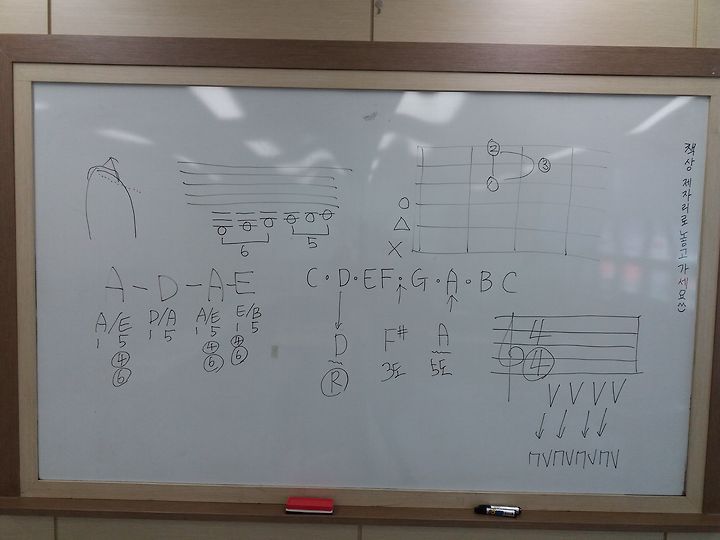 ②
③
①
○
△
X
6
5
A - D - A - E
C · D · E F · G · A · B C
A/E
1 5
④
⑥
D/A
1 5
A/E
1 5
④
⑥
E/B
1 5
④
⑥
D
Ⓡ
F#
3도
A
5도
4
④
V V V V
책상 제자리로 놓고 가세요